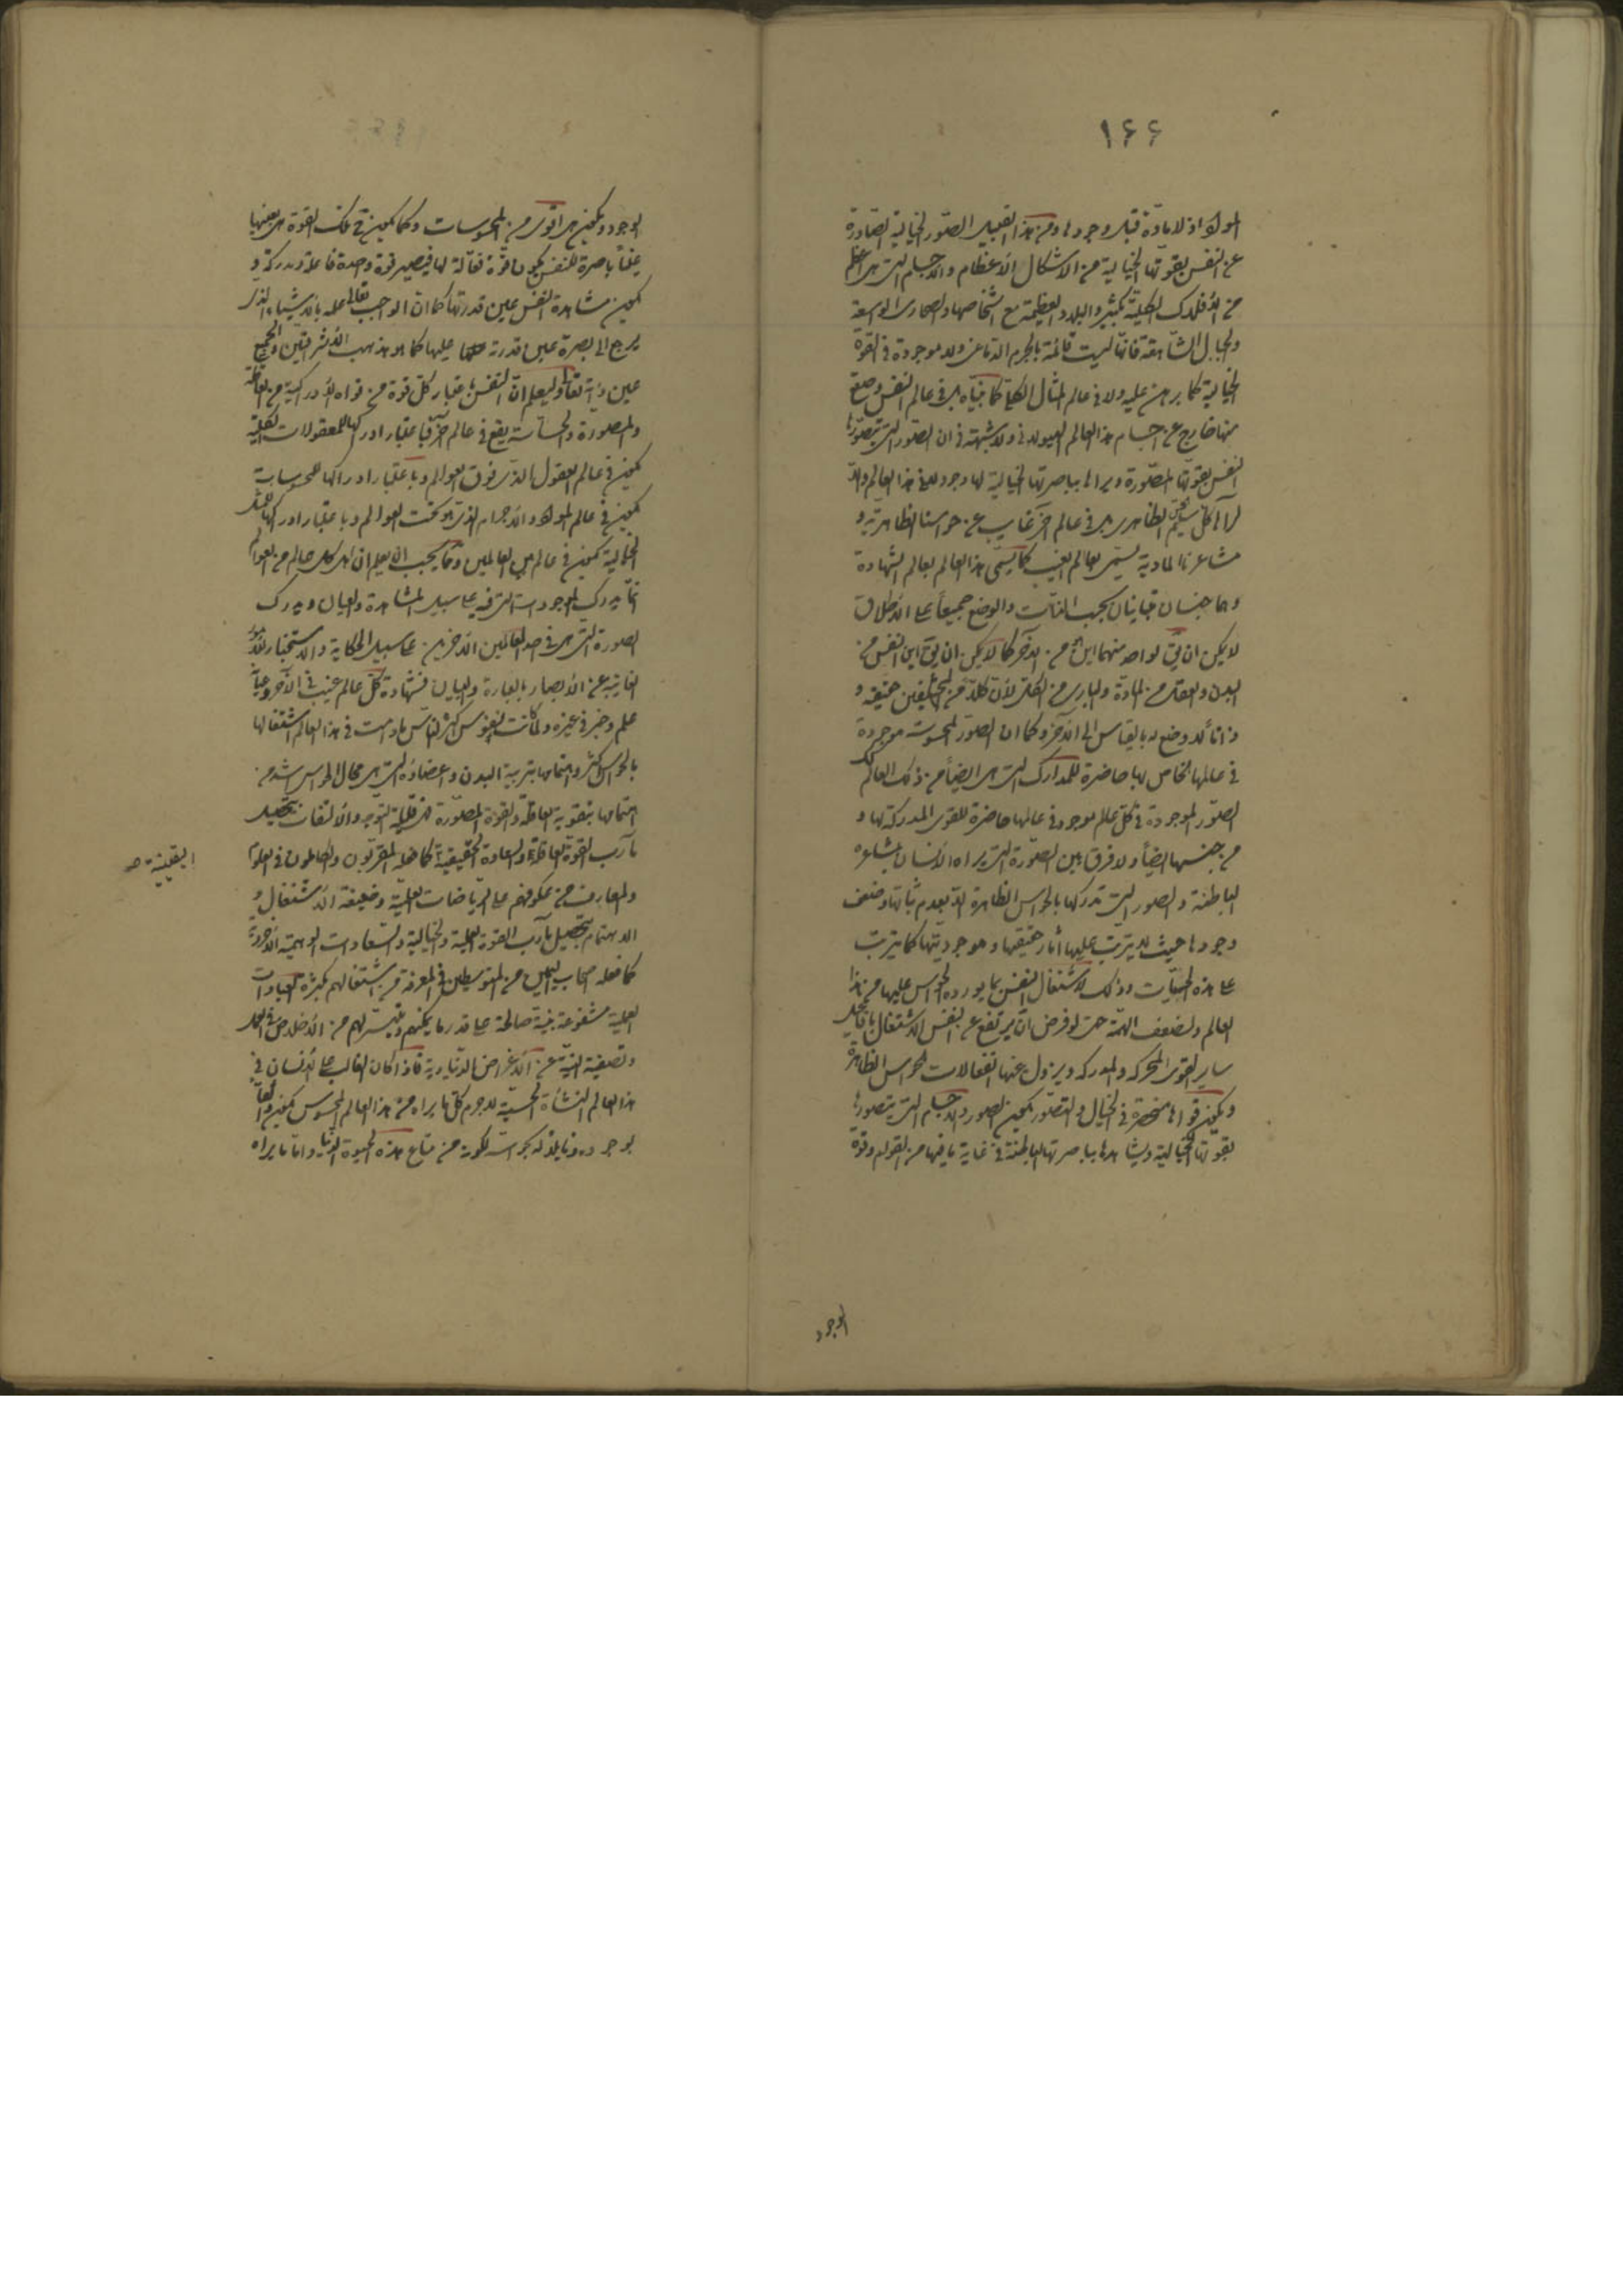 ١٦٦
المواد اذ لا مادّة قبل وجودها ومن هذا القبيل الصّور الخيالية الصّادرة
عن النفس بقوتها الخيالية من الاشكال الأعظام والأجسام التى هى اعظم
من الأفلاك الكلية بكثير والبلاد العظيمة مع اشخاصها والصحارى الواسعة
والجبال الشاهقة فانها ليست قائمة بالجرم الدّماغى ولا موجودة فى القوّة
الخيالية كما برهن عليه ولا فى عالم المثال الكلية كما بيّناه بل فى عالم النفس وصقع
منها خارج عن اجسام هذا العالم الهيولانى ولا شبهة فى ان الصّور التى تتصوّرها
النفس بقوتها المصّورة ويراها بباصرتها الخيالية لها وجود لا فى هذا العالم والّا
لرآها كلّ سليم الحسّ الظاهرى بل فى عالم آخر غايب عن حواسنا الظاهريّة و
مشاعرنا المادية يسمّى بعالم الغيب كما يسمّى هذا العالم بعالم الشهادة
وهما جنسان متباينان بحسب الذّات والوضع جميعاً على الأطلاق
لا يمكن ان يقّ لواحد منهما اين من الآخر كما لا يمكن ان يقّ اين النفس من
البدن والعقل من المادّة والبارى من الكلّ لأنّ كلّاً من المختلفين حقيقة و
ذاتا لا وضع له بالقياس الى الآخر وكما ان الصّور المحسوسة موجودة
فى عالمها الخاص بها حاضرة للمدارك التى هى ايضاً من ذلك العالم كك
الصّور الموجودة فى كلّ عالم موجود فى عالمها حاضرة للقوى المدركة لها و
من جنسها ايضاً ولا فرق بين الصّورة التى يراه الأنسان بمشاعره
الباطنة والصور التى تدركها بالحواس الظاهرة الّا بعدم ثباتها وضعف
وجودها حيث لا يترتّب عليها أثار حقيقتها وموجوديّتها كما يترتب
على هذه الحسيّات وذلك لاشتغال النفس بما يورده الحواس عليها من هذا
العالم ولضعف الهمّة حتى لو فرض ان يرتفع عن النفس الاشتغال بافاعيل
ساير القوى المحركه والمدركه ويزول عنها انفعالات الحواس الظاهرة
ويكون قواها منحصرة فى الخيال والتصّور يكون الصور والأجسام التى يتصورها
بقوتها الخيالية ويشاهدها بباصرتها الباطنة فى غاية ما فيها من القوام وقوّة
الوجود
الوجود ويكون هى اقوى من المحسوسات وكما يكون تلك القوة هى بعينها
عيناً باصرة للنفس يكون قوّة فعّالة لها فيصير قوة واحدة فاعلة ومدركة و
يكون مشاهدة النفس عين قدرتها كما ان الواجب تعالى علمه بالأشياء الذى
يرجع الى بصره عين قدرته عليها كما هو مذهب الأشراقيّين والجميع
عين ذاته تعالى وليعلم انّ النفس باعتبار كلّ قوة من قواه الأدراكية من العاقلة
والمصورة والحسّاسة يقع فى عالم آخر فباعتبار ادراكها للمعقولات الكلّية
يكون فى عالم العقول الذى فوق العوالم وباعتبار ادراكها للمحسوسات
يكون فى عالم المواد والأجرام الذى هو تحت العوالم وباعتبار ادراكها للمثل
الخيالية يكون فى عالم بين العالمين وممّا يجب ان يعلم ان اهل كل عالم من العوالم
انّما يدرك الموجودات التى فيه على سبيل المشاهدة والعيان ويدرك
الصورة التى هى فى احد العالمين الآخرين على سبيل الحكاية والاستخبار للأمور
الغايبة عن الأبصار بالعبارة والبيان فشهادة كلّ عالم غيب فى الآخر وعيانه
علم وخبر فى غيره ولمّا كانت نفوس اكثر النّاس ما دامت فى هذا العالم اشتغالها
بالحواس اكثر واهتمامها بتربية البدن واعضائه التى هى محالّ الحواس اشد من
اهتمامها بتقوية العاقلة والقوة المصّورة فهى قليلة التوجه والألتفات بتحصيل
مآرب القوّة العاقلة والسعادة الحقيقية كما فعله المقرّبون والكاملون فى العلوم
اليقينية صح
والمعارف من عكوفهم على الرّياضات العلميّة وضعيفة الأشتغال و
الاهتمام بتحصيل مآرب القوة العملية والخيالية والسّعادات الوهمية الأخروية
كما فعله اصحاب اليمين من المتوسطين فى المعرفة من اشتغالهم بكثرة العبادات
العملية مشفوعة بنية صالحة على قدر ما يمكنهم وتيسّر لهم من الأخلاص فى العمل
وتصفية النيّة عن الأغراض الدّنياوية فاذا كان الغالب على الأنسان فى
هذا العالم النشأة الحسيّة لا جرم كلّ ما يراه من هذا العالم المحسوس يكون
بوجوده وما يلتذّ به بحواسه لكونه من متاع هذه الحيوة الدّنيا وامّا ما يراه